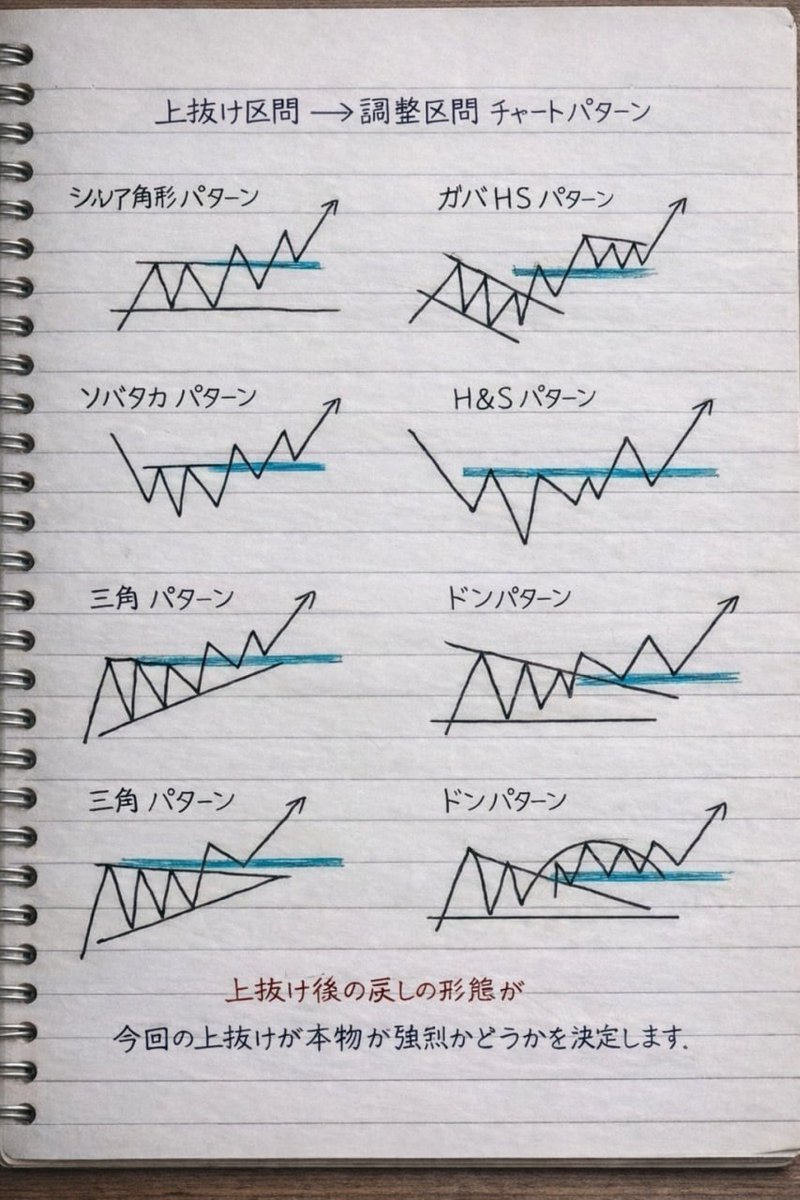 上抜け区問 → 調整区問 チャートパターン
シルア角形パターン
ガバHSパターン
ソバタカ パターン
H&Sパターン
三角 パターン
ドンパターン
三角 パターン
ドンパターン
上抜け後の戻しの形態が
今回の上抜けが本物が強烈かどうかを決定します.